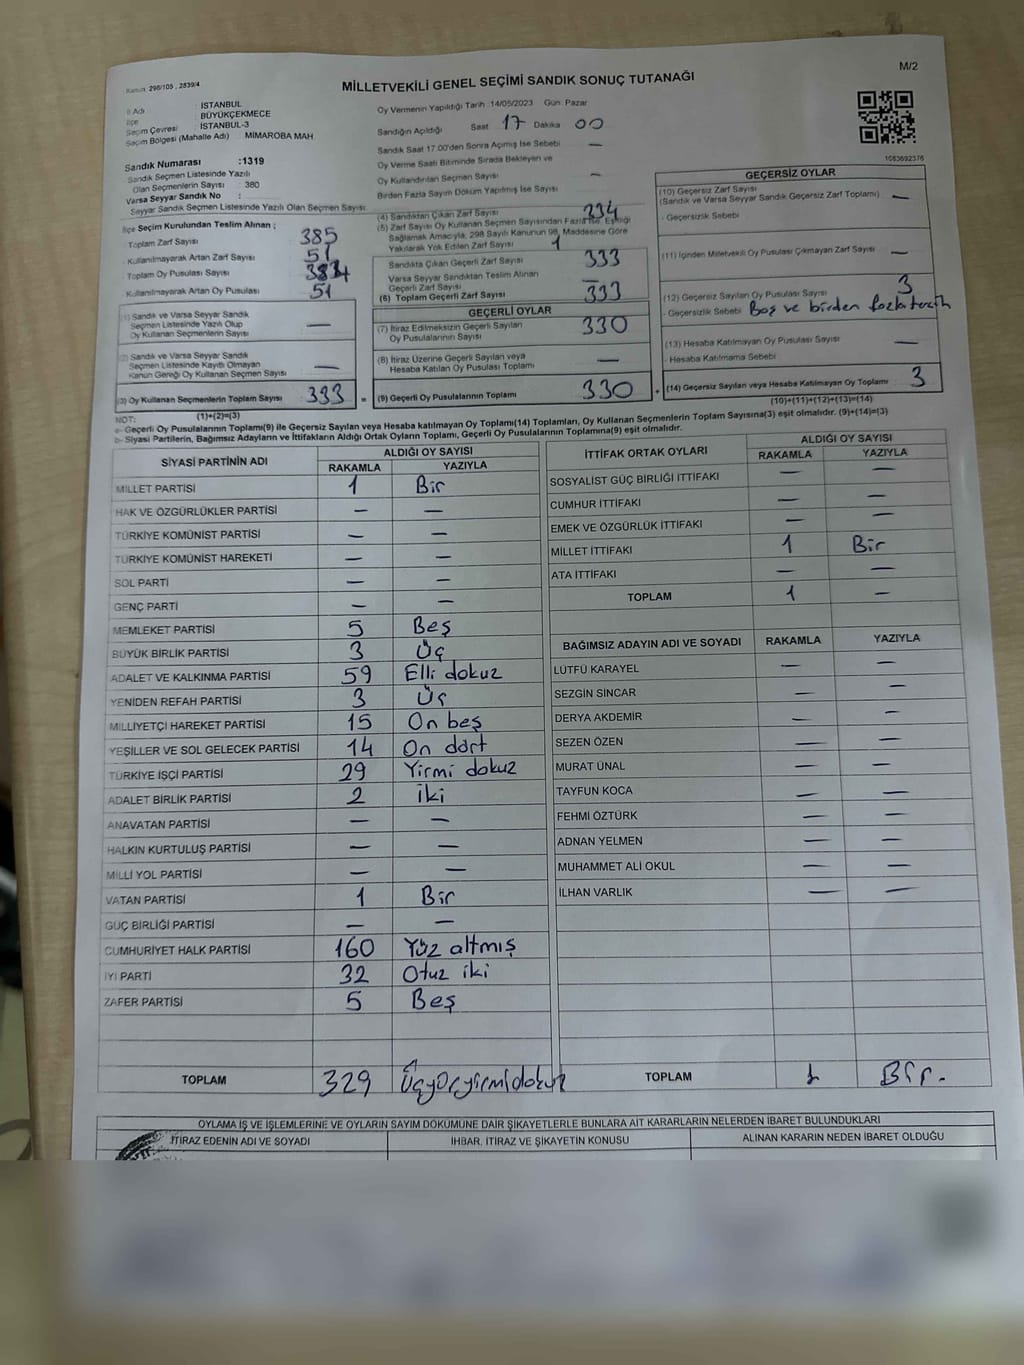 M/2
Kanun 298/105 , 2839/4
MİLLETVEKİLİ GENEL SEÇİMİ SANDIK SONUÇ TUTANAĞI
İl Adı İSTANBUL
İlçe BÜYÜKÇEKMECE
Seçim Çevresi İSTANBUL-3
Seçim Bölgesi (Mahalle Adı) MİMAROBA MAH
Sandık Numarası :1319
Sandık Seçmen Listesinde Yazılı
Olan Seçmenlerin Sayısı : 380
Varsa Seyyar Sandık No :
Seyyar Sandık Seçmen Listesinde Yazılı Olan Seçmen Sayısı:
Oy Vermenin Yapıldığı Tarih :14/05/2023 Gün: Pazar
Sandığın Açıldığı Saat 17 Dakika 00
Sandık Saat 17.00'den Sonra Açımış İse Sebebi —
Oy Verme Saati Bitiminde Sırada Bekleyen ve
Oy Kullandırılan Seçmen Sayısı —
Birden Fazla Sayım Döküm Yapılmış İse Sayısı —
1083692376
İlçe Seçim Kurulundan Teslim Alınan ;
Toplam Zarf Sayısı 385
Kullanılmayarak Artan Zarf Sayısı 51
Toplam Oy Pusulası Sayısı
Kullanılmayarak Artan Oy Pusulası 51
(1) Sandık ve Varsa Seyyar Sandık
Seçmen Listesinde Yazılı Olup
Oy Kullanan Seçmenlerin Sayısı —
(2) Sandık ve Varsa Seyyar Sandık
Seçmen Listesinde Kayıtlı Olmayan
Kanun Gereği Oy Kullanan Seçmen Sayısı —
(3) Oy Kullanan Seçmenlerin Toplam Sayısı 333 =
(1)+(2)=(3)
(4) Sandıktan Çıkan Zarf Sayısı 334
(5) Zarf Sayısı Oy Kullanan Seçmen Sayısından Fazla İse, Eşitliği
Sağlamak Amacıyla, 298 Sayılı Kanunun 98. Maddesine Göre
Yakılarak Yok Edilen Zarf Sayısı 1
Sandıkta Çıkan Geçerli Zarf Sayısı 333
Varsa Seyyar Sandıktan Teslim Alınan
Geçerli Zarf Sayısı —
(6) Toplam Geçerli Zarf Sayısı 333
GEÇERLİ OYLAR
(7) İtiraz Edilmeksizin Geçerli Sayılan
Oy Pusulalarının Sayısı 330
(8) İtiraz Üzerine Geçerli Sayılan veya
Hesaba Katılan Oy Pusulası Toplamı —
(9) Geçerli Oy Pusulalarının Toplamı 330 +
GEÇERSİZ OYLAR
(10) Geçersiz Zarf Sayısı
(Sandık ve Varsa Seyyar Sandık Geçersiz Zarf Toplamı) —
- Geçersizlik Sebebi
(11) İçinden Milletvekili Oy Pusulası Çıkmayan Zarf Sayısı —
(12) Geçersiz Sayılan Oy Pusulası Sayısı 3
- Geçersizlik Sebebi Boş ve birden fazla tercih
(13) Hesaba Katılmayan Oy Pusulası Sayısı —
- Hesaba Katılmama Sebebi
(14) Geçersiz Sayılan veya Hesaba Katılmayan Oy Toplamı 3
(10)+(11)+(12)+(13)=(14)
NOT:
a- Geçerli Oy Pusulalarının Toplamı(9) ile Geçersiz Sayılan veya Hesaba katılmayan Oy Toplamı(14) Toplamları, Oy Kullanan Seçmenlerin Toplam Sayısına(3) eşit olmalıdır. (9)+(14)=(3)
b- Siyasi Partilerin, Bağımsız Adayların ve İttifakların Aldığı Ortak Oyların Toplamı, Geçerli Oy Pusulalarının Toplamına(9) eşit olmalıdır.
SİYASİ PARTİNİN ADI ALDIĞI OY SAYISI
RAKAMLA YAZIYLA
MİLLET PARTİSİ 1 Bir
HAK VE ÖZGÜRLÜKLER PARTİSİ — —
TÜRKİYE KOMÜNİST PARTİSİ — —
TÜRKİYE KOMÜNİST HAREKETİ — —
SOL PARTİ — —
GENÇ PARTİ — —
MEMLEKET PARTİSİ 5 Beş
BÜYÜK BİRLİK PARTİSİ 3 Üç
ADALET VE KALKINMA PARTİSİ 59 Elli dokuz
YENİDEN REFAH PARTİSİ 3 Üç
MİLLİYETÇİ HAREKET PARTİSİ 15 On beş
YEŞİLLER VE SOL GELECEK PARTİSİ 14 On dört
TÜRKİYE İŞÇİ PARTİSİ 29 Yirmi dokuz
ADALET BİRLİK PARTİSİ 2 iki
ANAVATAN PARTİSİ — —
HALKIN KURTULUŞ PARTİSİ — —
MİLLİ YOL PARTİSİ — —
VATAN PARTİSİ 1 Bir
GÜÇ BİRLİĞİ PARTİSİ — —
CUMHURİYET HALK PARTİSİ 160 Yüz altmış
İYİ PARTİ 32 Otuz iki
ZAFER PARTİSİ 5 Beş
TOPLAM 329 Üçyüzyirmidokuz
İTTİFAK ORTAK OYLARI ALDIĞI OY SAYISI
RAKAMLA YAZIYLA
SOSYALİST GÜÇ BİRLİĞİ İTTİFAKI — —
CUMHUR İTTİFAKI — —
EMEK VE ÖZGÜRLÜK İTTİFAKI — —
MİLLET İTTİFAKI 1 Bir
ATA İTTİFAKI — —
TOPLAM 1 —
BAĞIMSIZ ADAYIN ADI VE SOYADI RAKAMLA YAZIYLA
LÜTFÜ KARAYEL — —
SEZGİN SİNCAR — —
DERYA AKDEMİR — —
SEZEN ÖZEN — —
MURAT ÜNAL — —
TAYFUN KOCA — —
FEHMİ ÖZTÜRK — —
ADNAN YELMEN — —
MUHAMMET ALİ OKUL — —
İLHAN VARLIK — —
TOPLAM 1 Bir.
OYLAMA İŞ VE İŞLEMLERİNE VE OYLARIN SAYIM DÖKÜMÜNE DAİR ŞİKAYETLERLE BUNLARA AİT KARARLARIN NELERDEN İBARET BULUNDUKLARI
İTİRAZ EDENİN ADI VE SOYADI İHBAR, İTİRAZ VE ŞİKAYETİN KONUSU ALINAN KARARIN NEDEN İBARET OLDUĞU